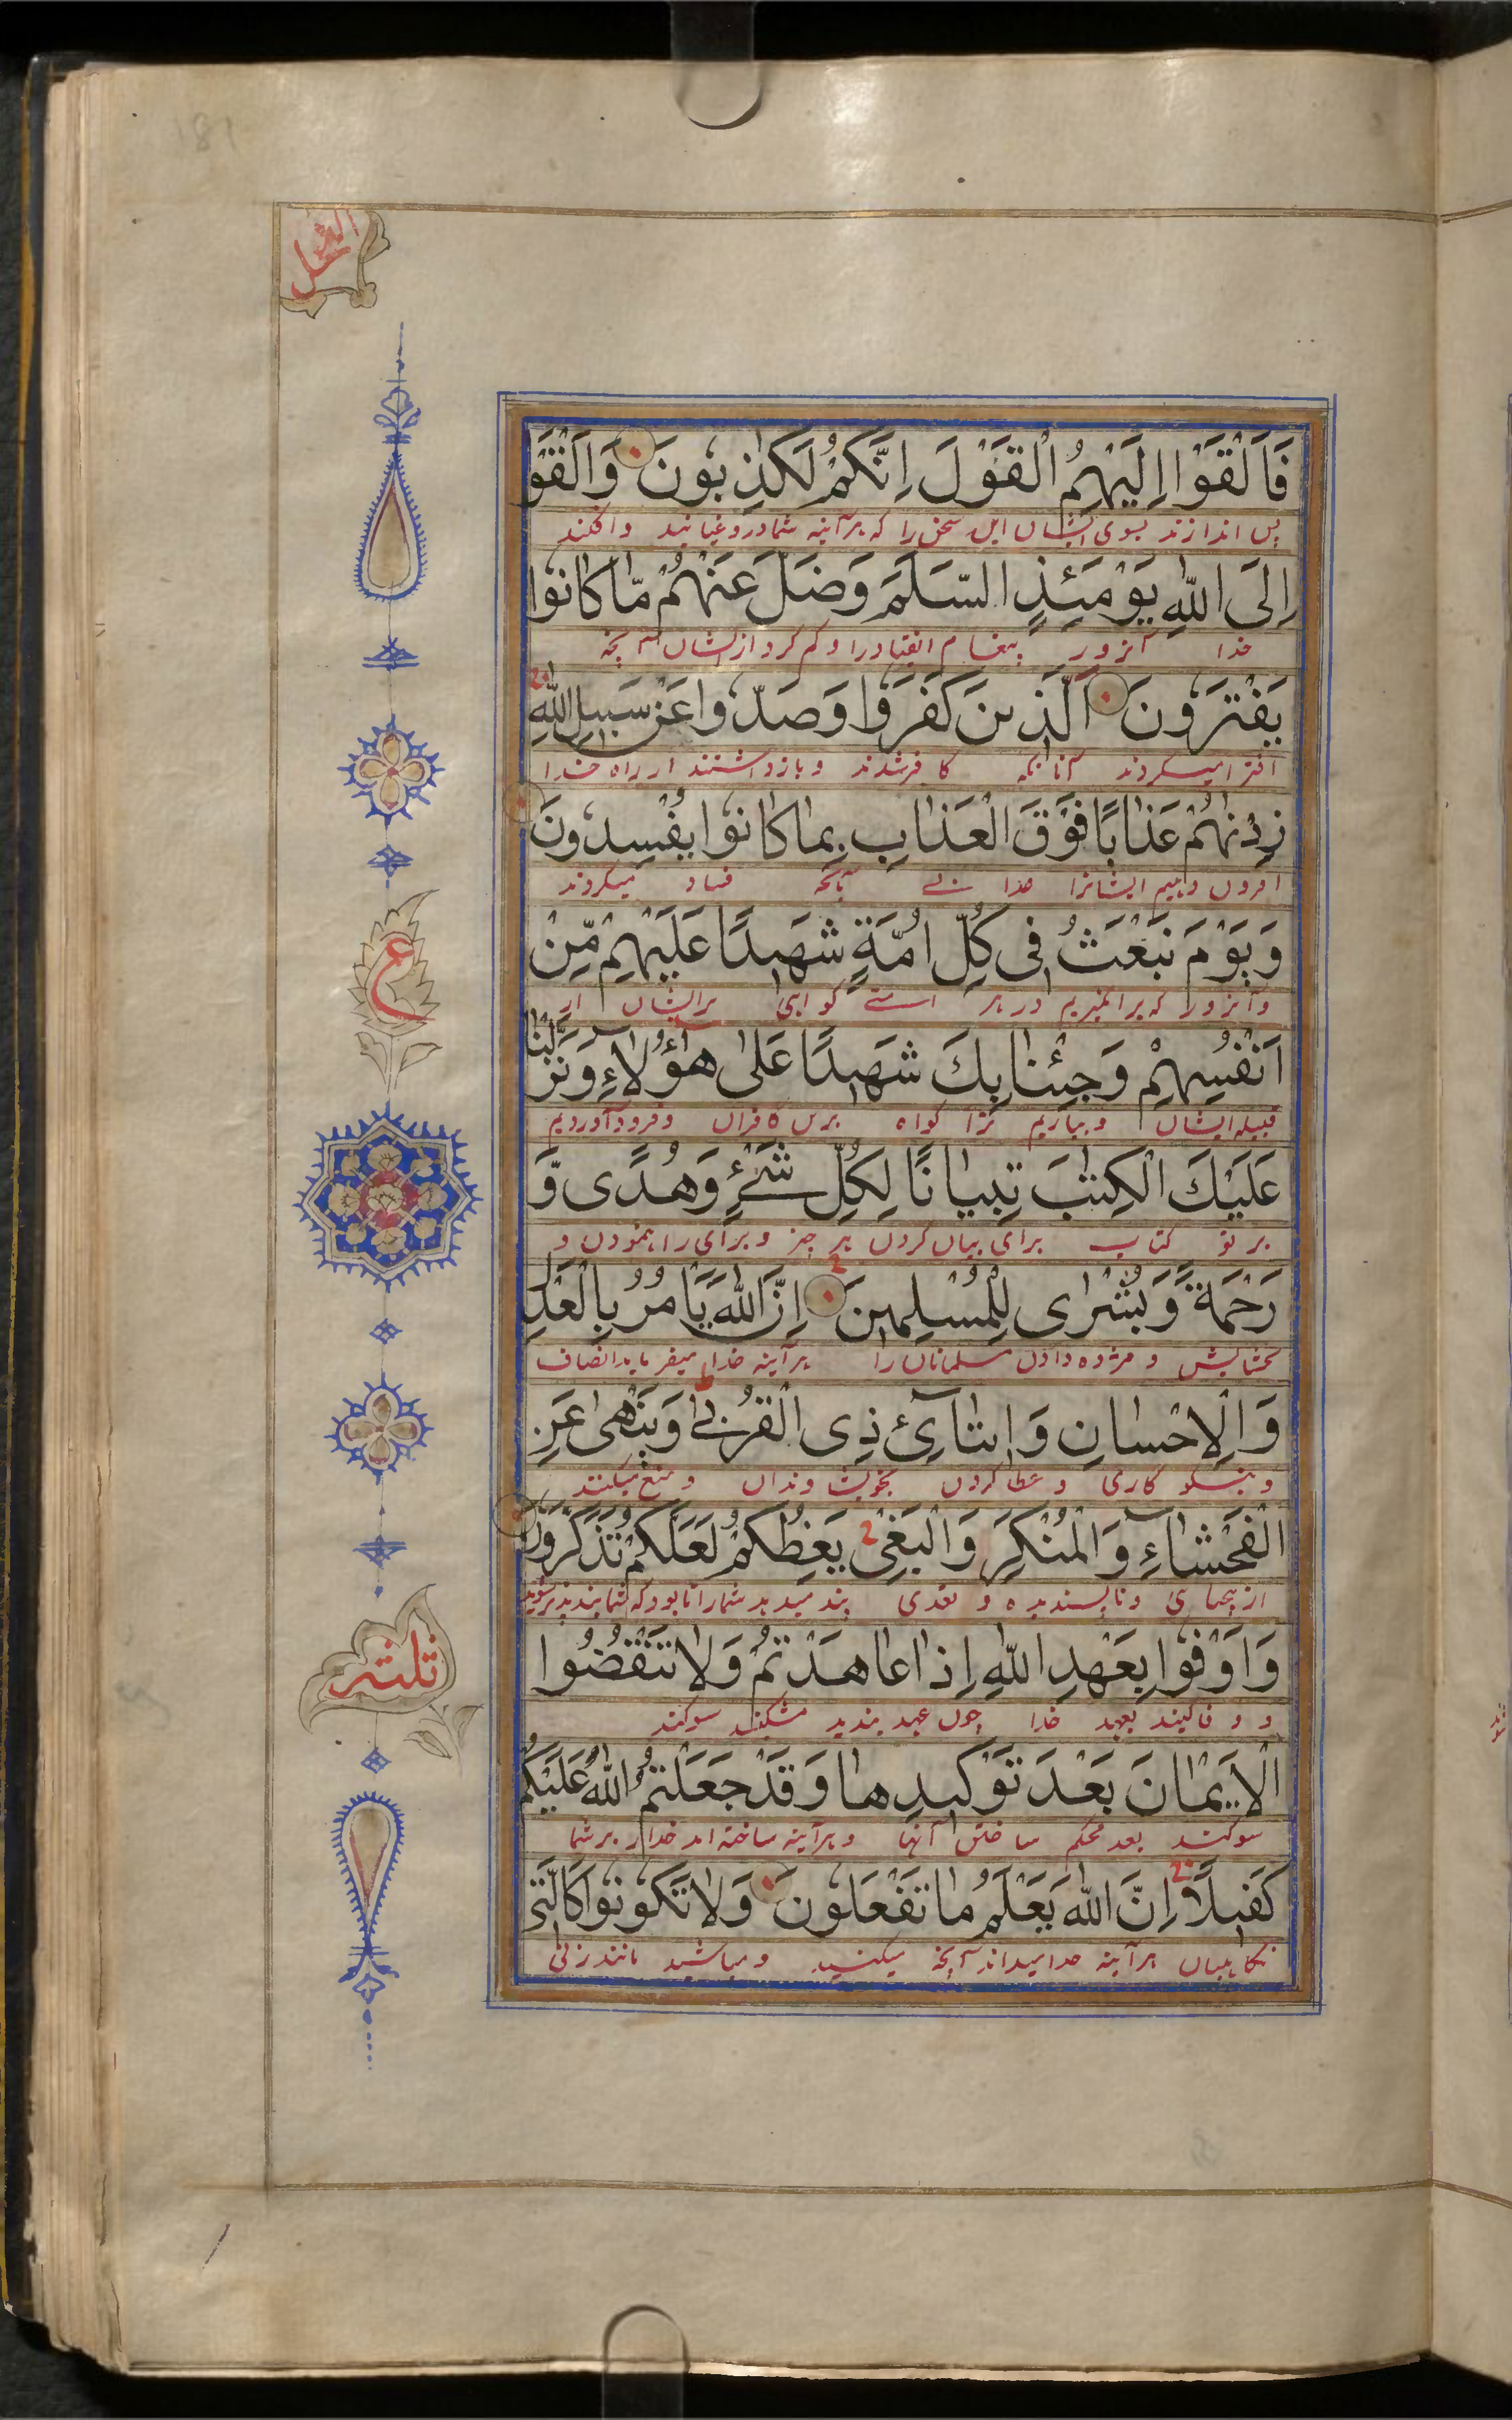 النحل
فَاَلْقَوْا اِلَيْهِمُ الْقَوْلَ اِنَّكُمْ لَكٰذِبُونَ وَاَلْقَوْا
پس اندازند بسوی ایشان این سخن را که هرآینه شما دروغیانید وافکند
اِلَى اللّٰهِ يَوْمَئِذٍ السَّلَمَ وَضَلَّ عَنْهُمْ مّٰا كٰانُوا
خدا آنروز پیغام انقیاد را و کم کرد از ایشان آنچه
يَفْتَرُونَ اَلَّذِينَ كَفَرُوا وَصَدُّوا عَنْ سَبِيلِ اللّٰهِ
افترا میکردند آنانکه کافر شدند و بازداشتند از راه خدا
زِدْنٰهُمْ عَذٰابًا فَوْقَ الْعَذٰابِ بِمٰا كٰانُوا يُفْسِدُونَ
افزون دهیم ایشانرا بآنکه فساد میکردند
وَيَوْمَ نَبْعَثُ فِى كُلِّ اُمَّةٍ شَهِيدًا عَلَيْهِمْ مِّنْ
وآنروز که برانگیزیم در هر امتی گواهی برایشان از
اَنْفُسِهِمْ وَجِئْنٰا بِكَ شَهِيدًا عَلٰى هٰٓؤُلٰاءِ وَنَزَّلْنٰا
قبیله ایشان و بیاریم ترا گواه برین کافران وفرود آوردیم
عَلَيْكَ الْكِتٰبَ تِبْيٰانًا لِكُلِّ شَیْءٍ وَهُدًى وَّ
بر تو کتاب برای بیان کردن هر چیز و برای راه نمودن و
رَحْمَةً وَّبُشْرٰى لِلْمُسْلِمِينَ اِنَّ اللّٰهَ يَاْمُرُ بِالْعَدْلِ
بخشایش و مژده دادن مسلمانان را هرآینه خدا میفرماید بانصاف
وَالْاِحْسٰانِ وَاِيتٰآئِ ذِى الْقُرْبٰى وَيَنْهٰى عَنِ
و نیکو کاری و عطا کردن بخویشاوندان و منع میکند
الْفَحْشٰآءِ وَالْمُنْكَرِ وَالْبَغْىِ يَعِظُكُمْ لَعَلَّكُمْ تَذَكَّرُونَ
از بیحیائی و ناپسندیده و تعدی پند میدهد شما را تا بود که شما پند پذیر شوید
ع
وَاَوْفُوا بِعَهْدِ اللّٰهِ اِذٰا عٰاهَدْتُمْ وَلٰا تَنْقُضُوا
و وفا کنید بعهد خدا چون عهد بندید مشکنید سوکند
ثلثه
الْاَيْمٰانَ بَعْدَ تَوْكِيدِهٰا وَقَدْ جَعَلْتُمُ اللّٰهَ عَلَيْكُمْ
سوکند بعد محکم ساختن آنها و هرآینه ساخته اید خدا را بر شما
كَفِيلًا اِنَّ اللّٰهَ يَعْلَمُ مٰا تَفْعَلُونَ وَلٰا تَكُونُوا كَالَّتِى
نگاهبان هرآینه خدا میداند آنچه میکنید و مباشید مانند زنی